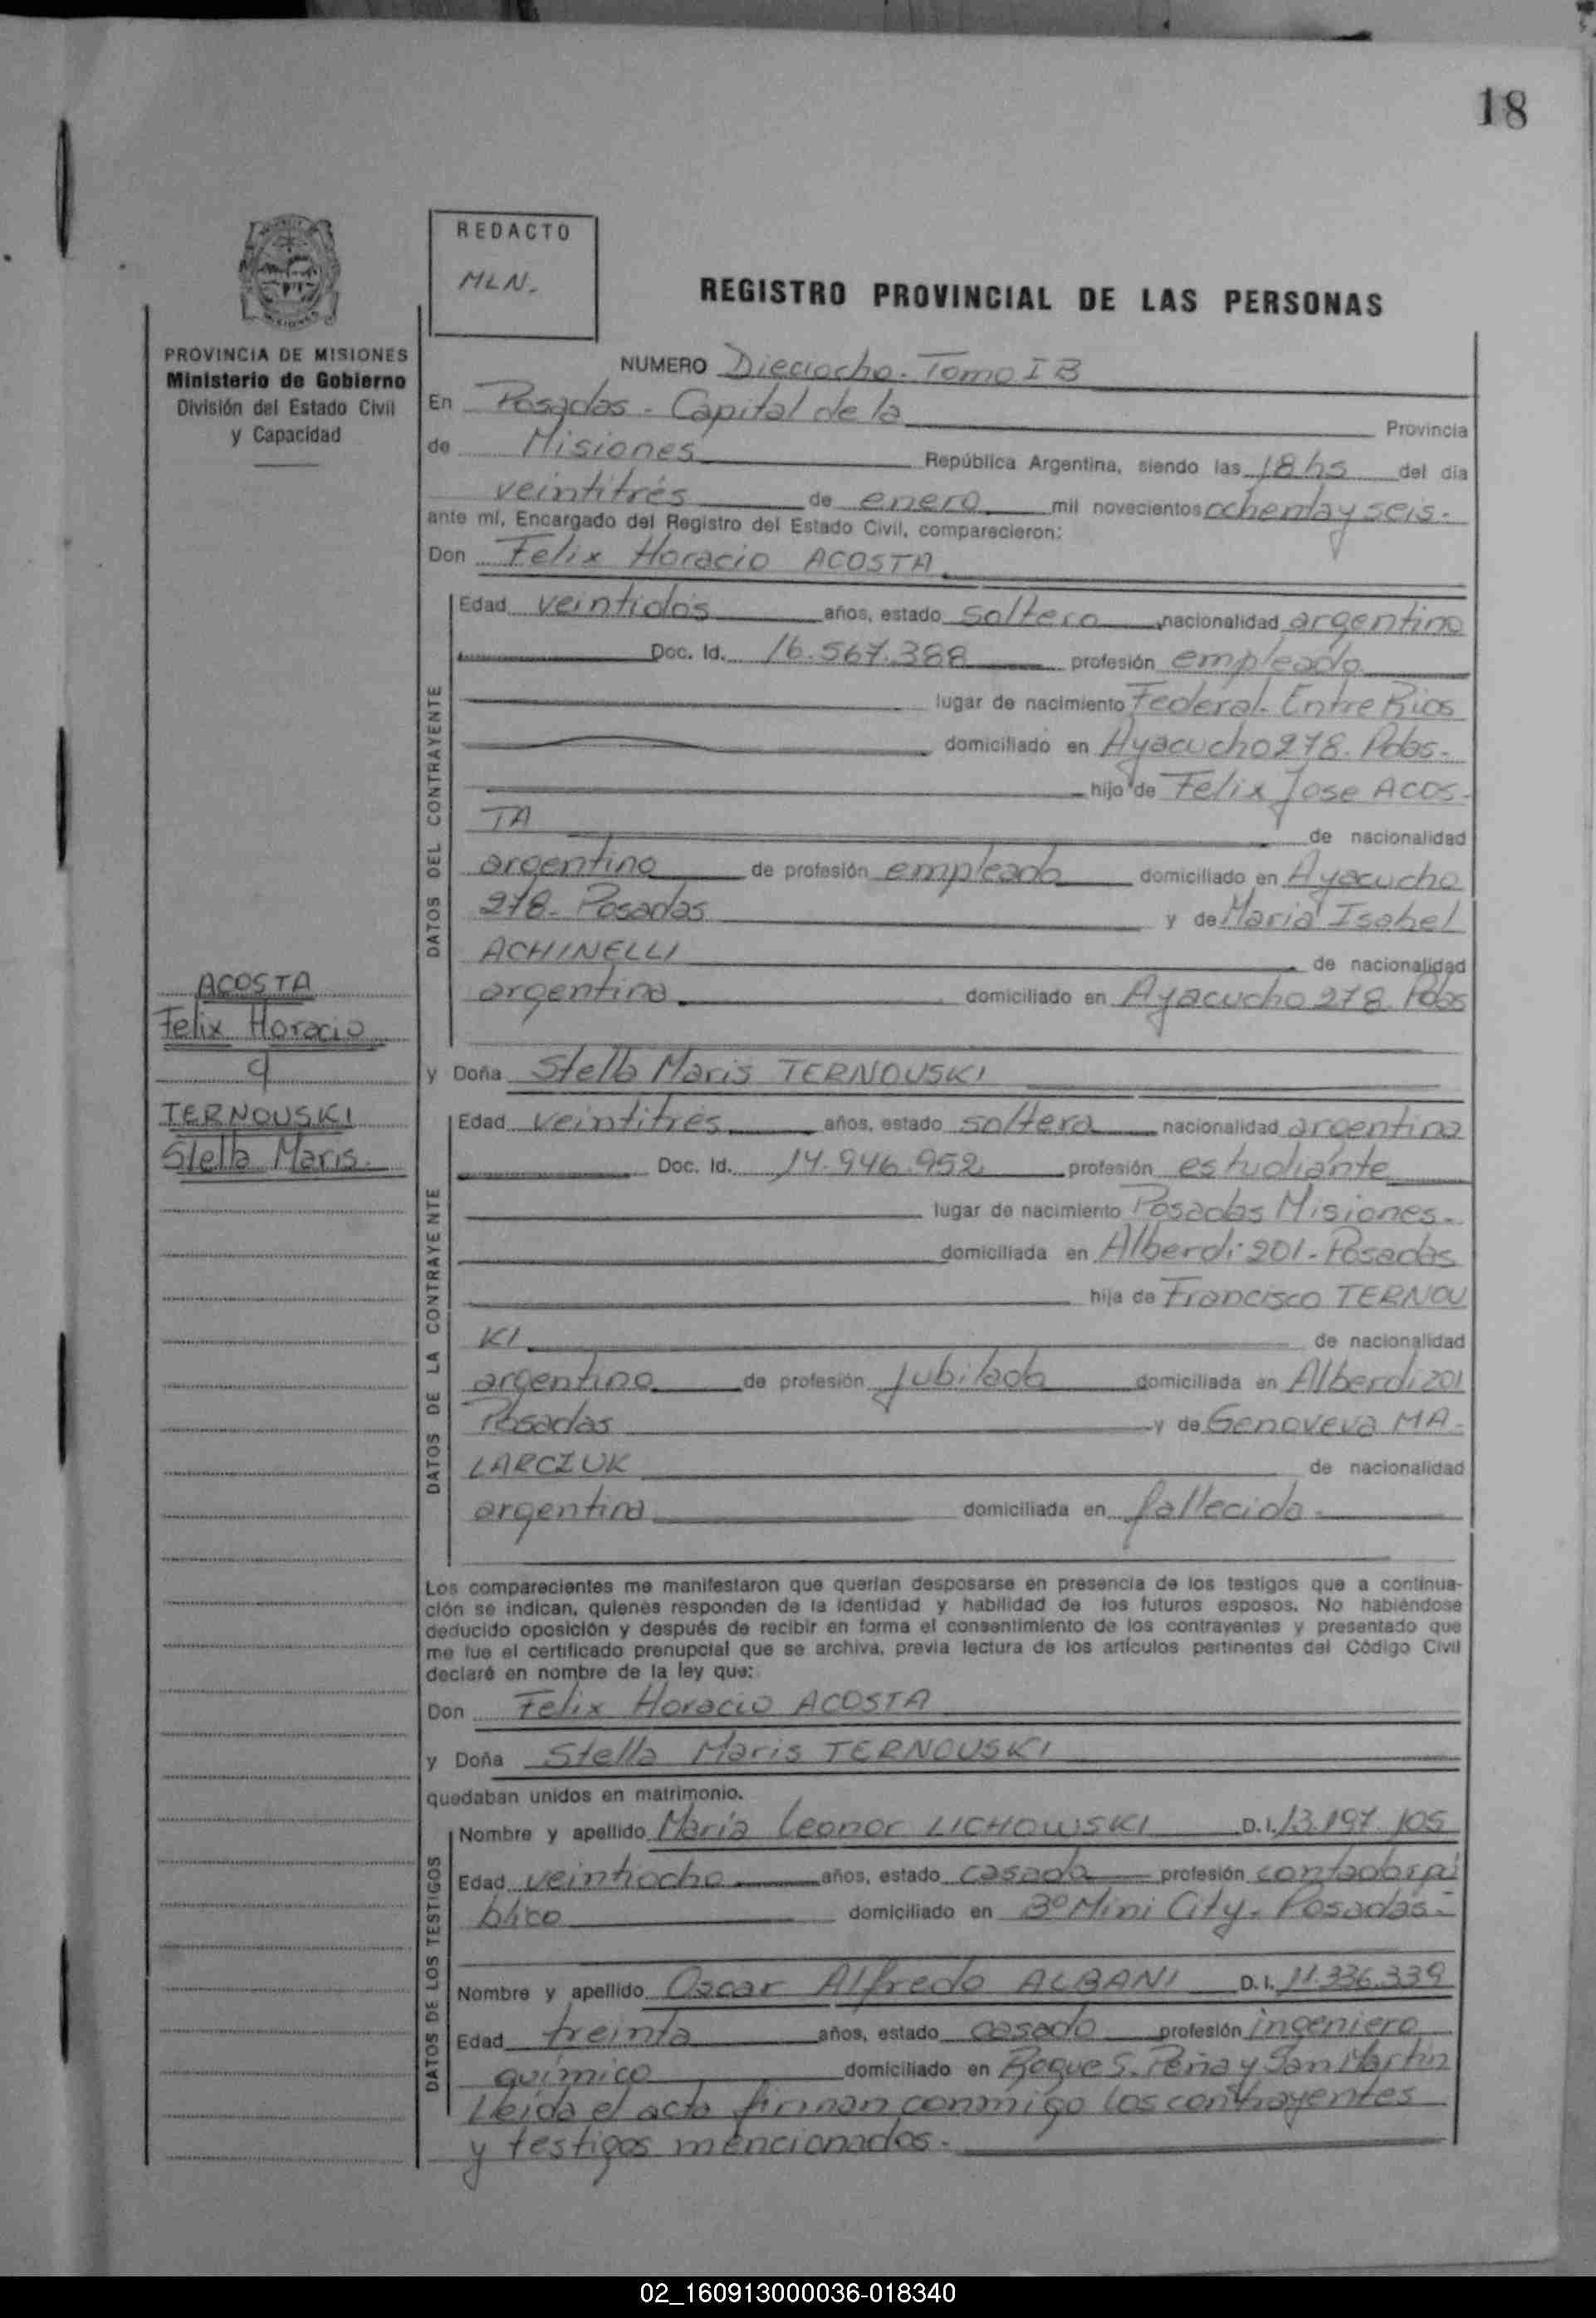 18
REDACTO
MLN.
REGISTRO PROVINCIAL DE LAS PERSONAS
MISIONES
PROVINCIA DE MISIONES
Ministerio de Gobierno
División del Estado Civil
y Capacidad
ACOSTA
Felix Horacio
y
TERNOUSKI
Stella Maris.
NUMERO Dieciocho. Tomo I B
En Posadas - Capital de la Provincia
de Misiones República Argentina, siendo las 18 hs del día
veintitrés de enero mil novecientos ochenta y seis.
ante mí, Encargado del Registro del Estado Civil, comparecieron:
Don Felix Horacio ACOSTA
DATOS DEL CONTRAYENTE
Edad veintidós años, estado soltero nacionalidad argentino
Doc. Id. 16.567.388 profesión empleado
lugar de nacimiento Federal. Entre Rios
domiciliado en Ayacucho 278. Pdas.
hijo de Felix Jose ACOS-
TA de nacionalidad
argentino de profesión empleado domiciliado en Ayacucho
278. Posadas y de Maria Isabel
ACHINELLI de nacionalidad
argentina domiciliado en Ayacucho 278 Pdas
y Doña Stella Maris TERNOUSKI
DATOS DE LA CONTRAYENTE
Edad veintitrés años, estado soltera nacionalidad argentina
Doc. Id. 14.946.952 profesión estudiante
lugar de nacimiento Posadas Misiones.
domiciliada en Alberdi 201 - Posadas
hija de Francisco TERNOU
KI de nacionalidad
argentino de profesión jubilado domiciliada en Alberdi 201
Posadas y de Genoveva MA-
LARCZUK de nacionalidad
argentina domiciliada en fallecida.
Los comparecientes me manifestaron que querían desposarse en presencia de los testigos que a continua-
ción se indican, quienes responden de la identidad y habilidad de los futuros esposos. No habiéndose
deducido oposición y después de recibir en forma el consentimiento de los contrayentes y presentado que
me fue el certificado prenupcial que se archiva, previa lectura de los artículos pertinentes del Código Civil
declaré en nombre de la ley que:
Don Felix Horacio ACOSTA
y Doña Stella Maris TERNOUSKI
quedaban unidos en matrimonio.
DATOS DE LOS TESTIGOS
Nombre y apellido María Leonor LICHOWSKI D.I. 13.197.105
Edad veintiocho años, estado casada profesión contadora pú
blico domiciliado en 3º Mini City. Posadas.
Nombre y apellido Oscar Alfredo ALBANI D.I. 11.336.339
Edad treinta años, estado casado profesión ingeniero
químico domiciliado en Roque S. Peña y San Martín
Leida el acta firman conmigo los contrayentes
y testigos mencionados.
02_160913000036-018340